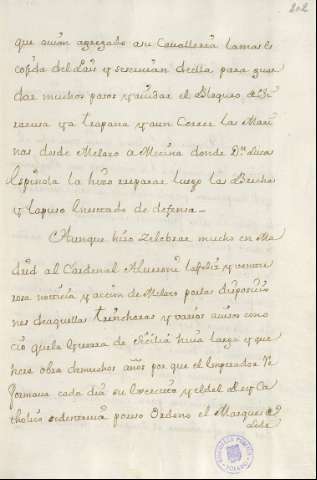 202
que avian agregado a su Cavalleria la mas es
cojida del Pais y se servian de ella para guar
dar muchos pasos y ayudar el Bloqueo de Si
racusa y a trapana y aun Correr las Mari
nas desde Melazo a Mecina donde Dn. Luca
Spinola la hizo reparar luego las Brechas
y la puso en estado de defensa
Aunque hizo zelebrar mucho en Ma
drid al Cardenal Alveroni la feliz y ventu
rosa noticia y accion de Melazo por las disposicio
nes de aquellas trincheras y varios avisos cono
cio que la Guerra de Sicilia hiria larga y que
hera obra de muchos años por que el Emperador Re
formava cada dia su Exercito y el del Rey Ca
tholico se detenia por eso Ordeno el Marques de
Lede
BIBLIOTECA PUBLICA
TOLEDO